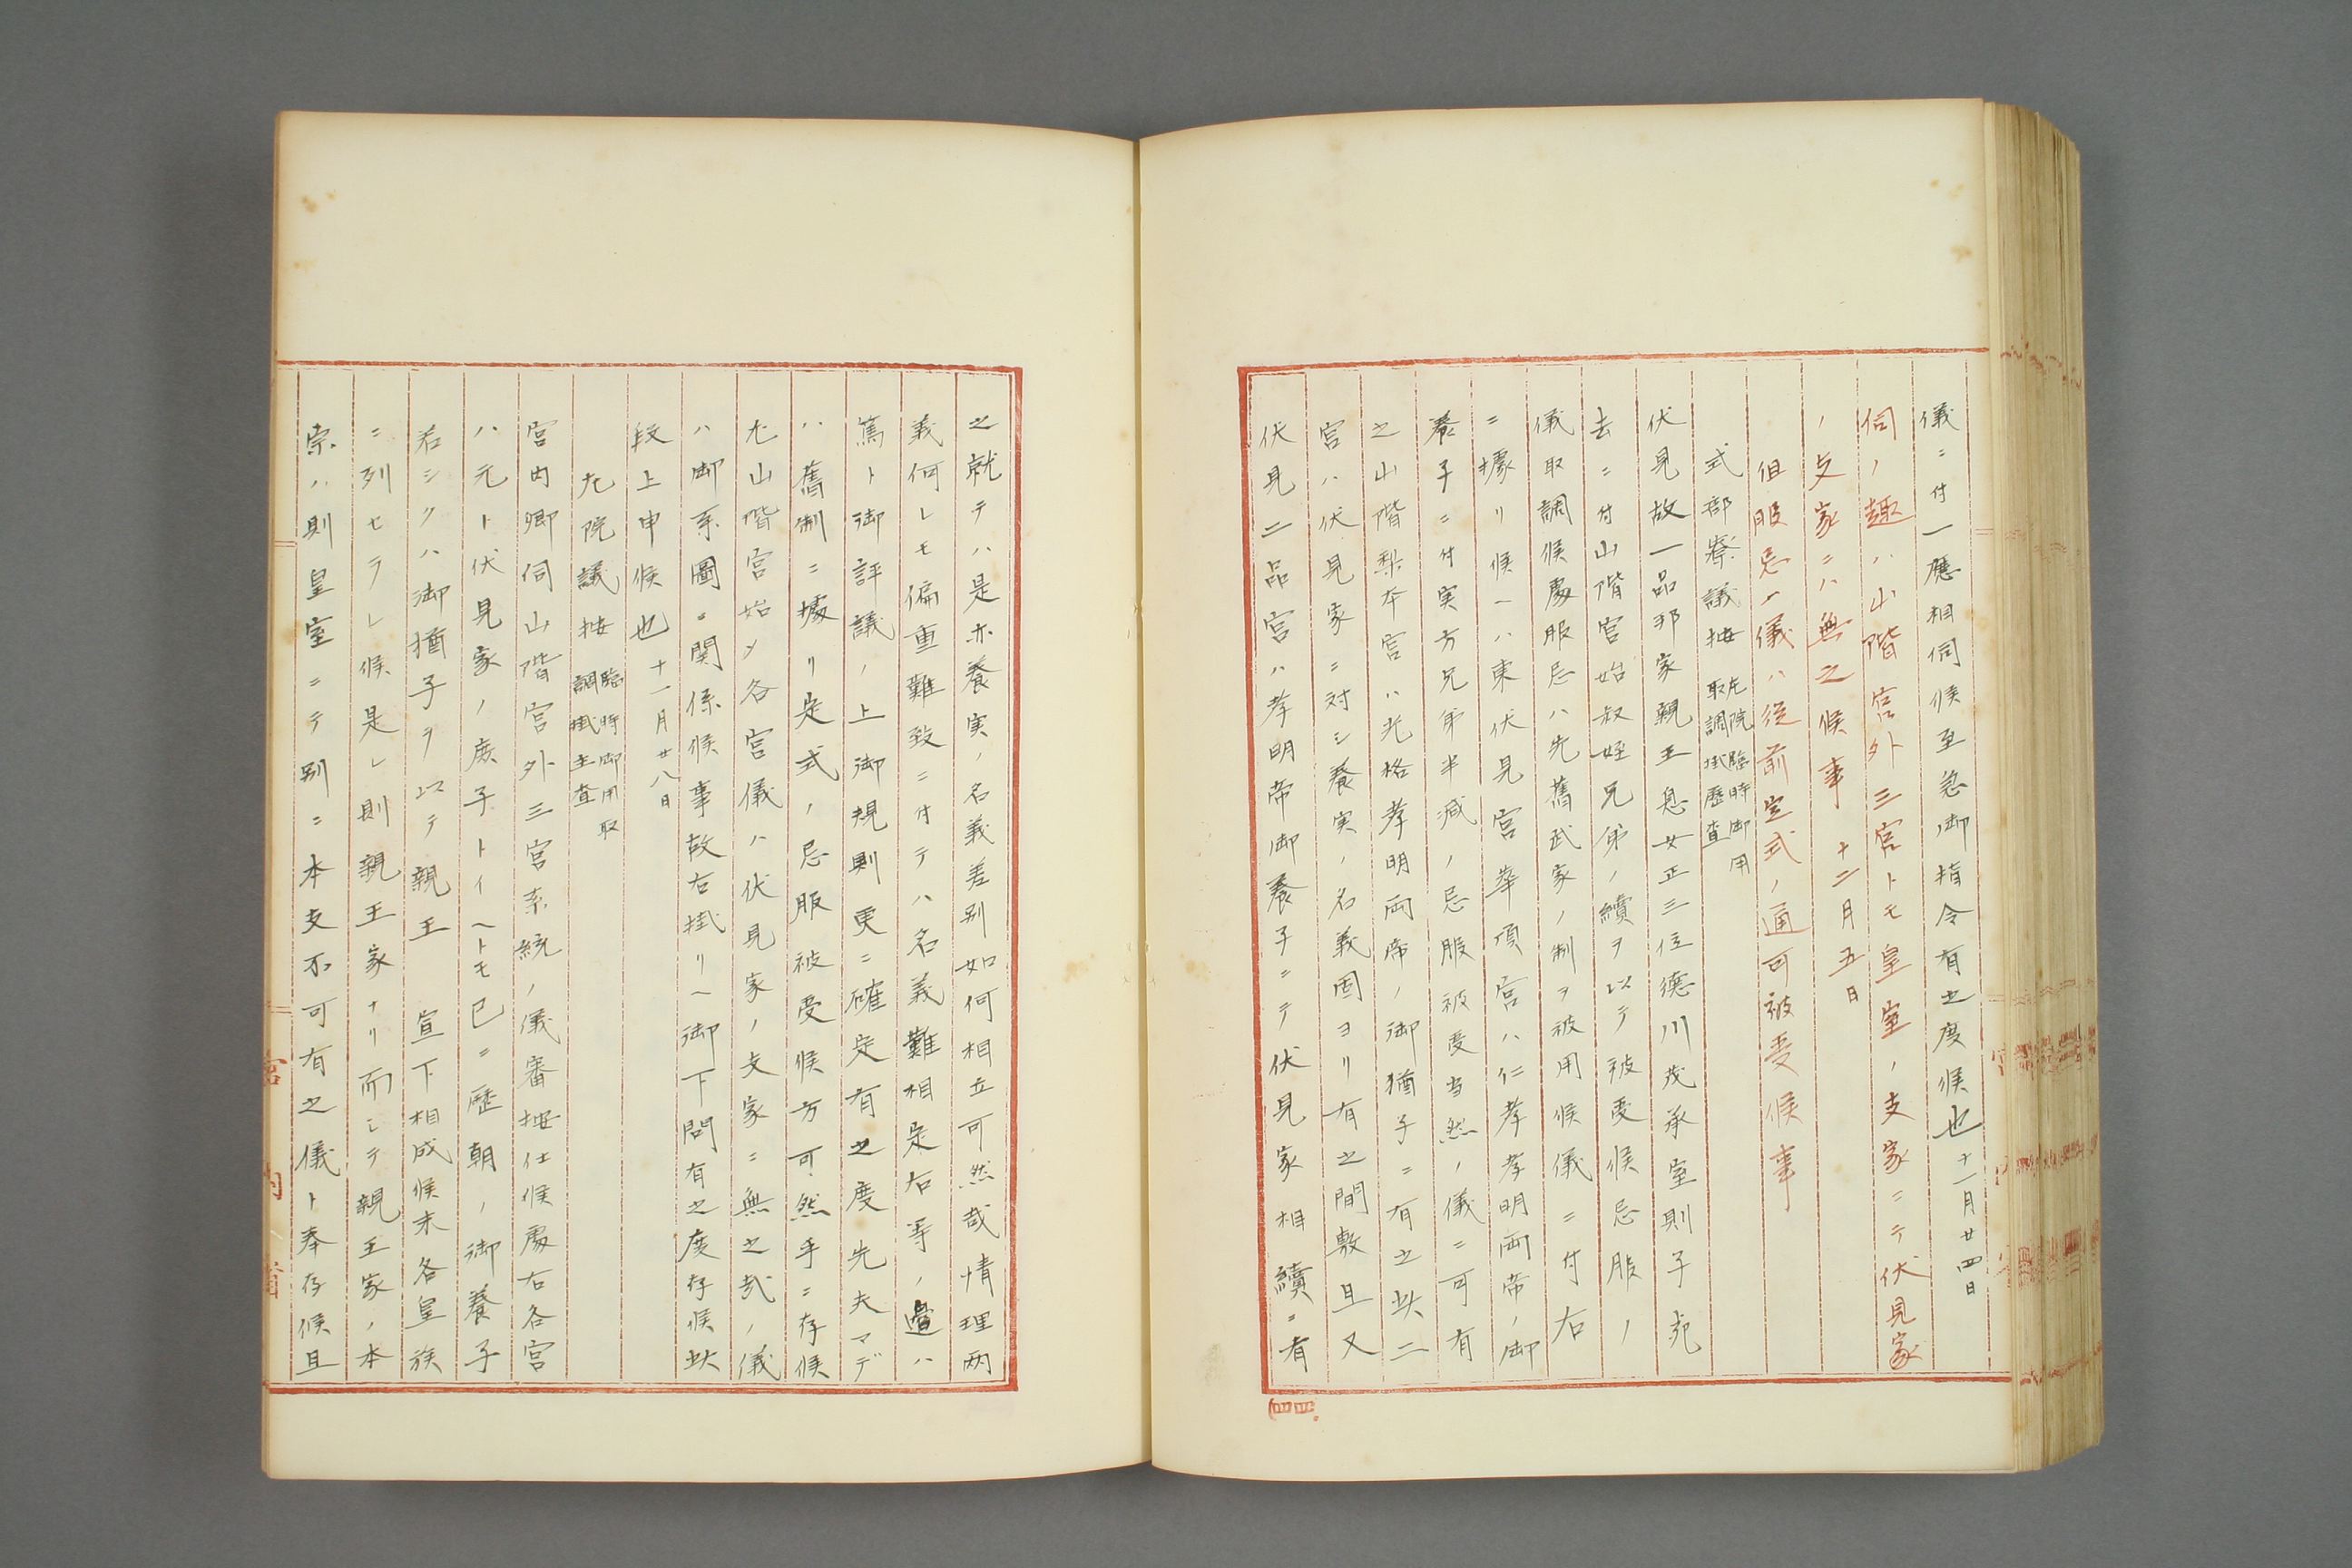 儀ニ付一應相伺候至急御指令有之度候也十一月廿四日
伺ノ趣ハ山階宮外三宮トモ皇室ノ支家ニテ伏見家
ノ支家ニハ無之候事 十二月五日
但服忌ノ儀ハ従前定式ノ通可被受候事
式部寮議按 左院臨時御用
取調掛歴査
伏見故一品邦家親王息女正三位徳川茂承室則子薨
去ニ付山階宮始叔姪兄弟ノ續ヲ以テ被受候忌服ノ
儀取調候處服忌ハ先舊武家ノ制ヲ被用候儀ニ付右
ニ據リ候ヘハ東伏見宮華頂宮ハ仁孝孝明両帝ノ御
養子ニ付実方兄弟半減ノ忌服被受当然ノ儀ニ可有
之山階梨本宮ハ光格孝明両帝ノ御猶子ニ有之此二
宮ハ伏見家ニ対シ養実ノ名義固ヨリ有之間敷且又
伏見二品宮ハ孝明帝御養子ニテ伏見家相續ニ有
之就テハ是亦養実ノ名義差別如何相立可然哉情理両
義何レモ偏重難致ニ付テハ名義難相定右等ノ邉ハ
篤ト御評議ノ上御規則更ニ確定有之度先夫マデ
ハ舊制ニ據リ定式ノ忌服被受候方可然乎ニ存候
尤山階宮始メ各宮儀ハ伏見家ノ支家ニ無之哉ノ儀
ハ御系圖ニ関係候事故右掛リヘ御下問有之度存候此
段上申候也 十一月廿八日
左院議按 臨時御用取
調掛主査
宮内卿伺山階宮外三宮系統ノ儀審按仕候處右各宮
ハ元ト伏見家ノ庶子トイヘトモ已ニ歴朝ノ御養子
若シクハ御猶子ヲ以テ親王 宣下相成候末各皇族
ニ列セラレ候是レ則親王家ナリ而シテ親王家ノ本
宗ハ則皇室ニテ別ニ本支不可有之儀ト奉存候且
宮内省